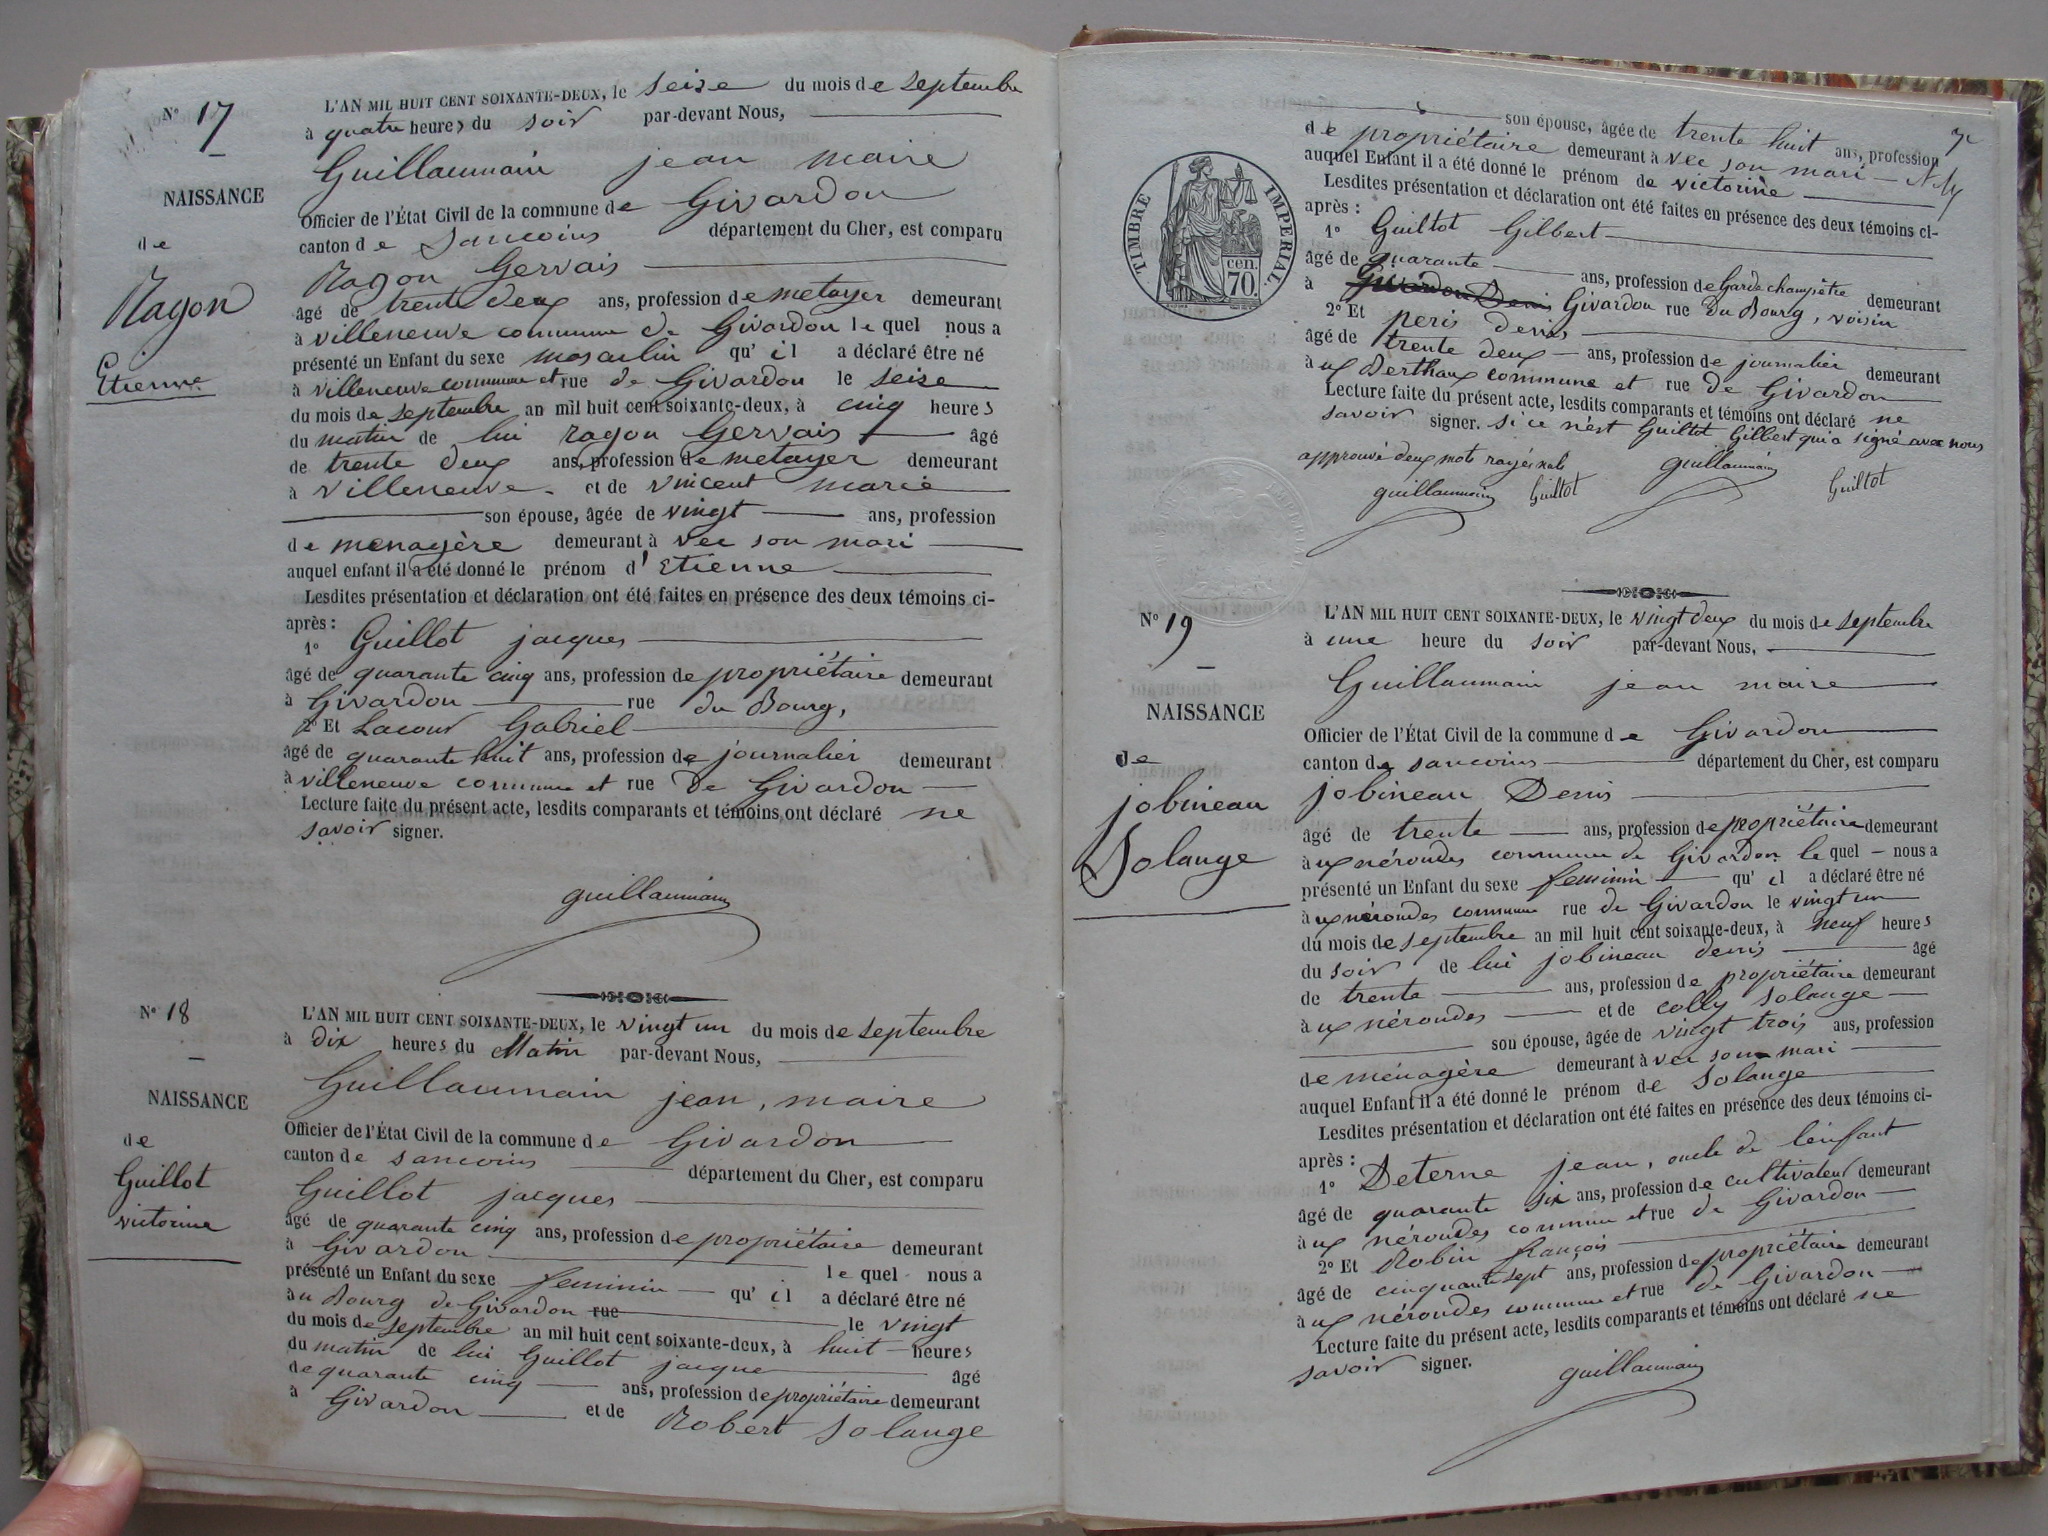 N° 17
NAISSANCE
de
Ragon
Etienne
L'AN MIL HUIT CENT SOIXANTE-DEUX, le seize du mois de septembre
à quatre heures du soir par-devant Nous,
Guillaumain jean maire
Officier de l'État Civil de la commune de Givardon
canton de Sancoins département du Cher, est comparu
Ragon Gervais
âgé de trente deux ans, profession de metayer demeurant
à villeneuve commune de Givardon le quel nous a
présenté un Enfant du sexe masculin qu' il a déclaré être né
à villeneuve commune et rue de Givardon le seize
du mois de septembre an mil huit cent soixante-deux, à cinq heures
du matin de lui ragon Gervais âgé
de trente deux ans, profession de metayer demeurant
à villeneuve. et de vincent marie
son épouse, âgée de vingt ans, profession
de menagère demeurant à vec son mari
auquel enfant il a été donné le prénom d'Etienne
Lesdites présentation et déclaration ont été faites en présence des deux témoins ci-
après :
1° Guillot jacques
âgé de quarante cinq ans, profession de propriétaire demeurant
à Givardon rue du Bourg,
2° Et Lacour Gabriel
âgé de quarante huit ans, profession de journalier demeurant
à villeneuve commune et rue de Givardon
Lecture faite du présent acte, lesdits comparants et témoins ont déclaré ne
savoir signer.
guillaumain
N° 18
NAISSANCE
de
Guillot
victorine
L'AN MIL HUIT CENT SOIXANTE-DEUX, le vingt un du mois de septembre
à dix heures du Matin par-devant Nous,
Guillaumain jean, maire
Officier de l'État Civil de la commune de Givardon
canton de sancoins département du Cher, est comparu
Guillot jacques
âgé de quarante cinq ans, profession de propriétaire demeurant
à Givardon le quel nous a
présenté un Enfant du sexe feminin qu' il a déclaré être né
au Bourg de Givardon rue le vingt
du mois de septembre an mil huit cent soixante-deux, à huit heures
du matin de lui Guillot jacque âgé
de quarante cinq ans, profession de propriétaire demeurant
à Givardon et de Robert Solange
son épouse, âgée de trente huit ans, profession
de propriétaire demeurant à vec son mari
auquel Enfant il a été donné le prénom de victorine
Lesdites présentation et déclaration ont été faites en présence des deux témoins ci-
après :
TIMBRE IMPERIAL.
cen.
70.
1° Guiltot Gilbert
âgé de quarante ans, profession de Garde champêtre demeurant
à Givardon Denis Givardon rue du Bourg, voisin
2° Et peris denis
âgé de trente deux ans, profession de journalier demeurant
à ux Berthaux commune et rue de Givardon
Lecture faite du présent acte, lesdits comparants et témoins ont déclaré ne
savoir signer. si ce n'est Guiltot Gilbert qui a signé avec nous
approuvé deux mots rayés nuls guillaumain Guiltot
guillaumain Guiltot
N° 19
NAISSANCE
de
jobineau
Solange
L'AN MIL HUIT CENT SOIXANTE-DEUX, le vingt deux du mois de septembre
à une heure du soir par-devant Nous,
Guillaumain jean maire
Officier de l'État Civil de la commune de Givardon
canton de sancoins département du Cher, est comparu
jobineau Denis
âgé de trente ans, profession de propriétaire demeurant
à ux nérondes commune de Givardon le quel nous a
présenté un Enfant du sexe feminin qu' il a déclaré être né
à ux nérondes commune rue de Givardon le vingt un
du mois de septembre an mil huit cent soixante-deux, à neuf heures
du soir de lui jobineau denis âgé
de trente ans, profession de propriétaire demeurant
à ux nérondes et de colly solange
son épouse, âgée de vingt trois ans, profession
de ménagère demeurant à vec son mari
auquel Enfant il a été donné le prénom de Solange
Lesdites présentation et déclaration ont été faites en présence des deux témoins ci-
après :
1° Deterne jean, oncle de l'enfant
âgé de quarante six ans, profession de cultivateur demeurant
à ux nérondes commune et rue de Givardon
2° Et Robin françois
âgé de cinquante sept ans, profession de propriétaire demeurant
à ux nérondes commune et rue de Givardon
Lecture faite du présent acte, lesdits comparants et témoins ont déclaré ne
savoir signer.
guillaumain